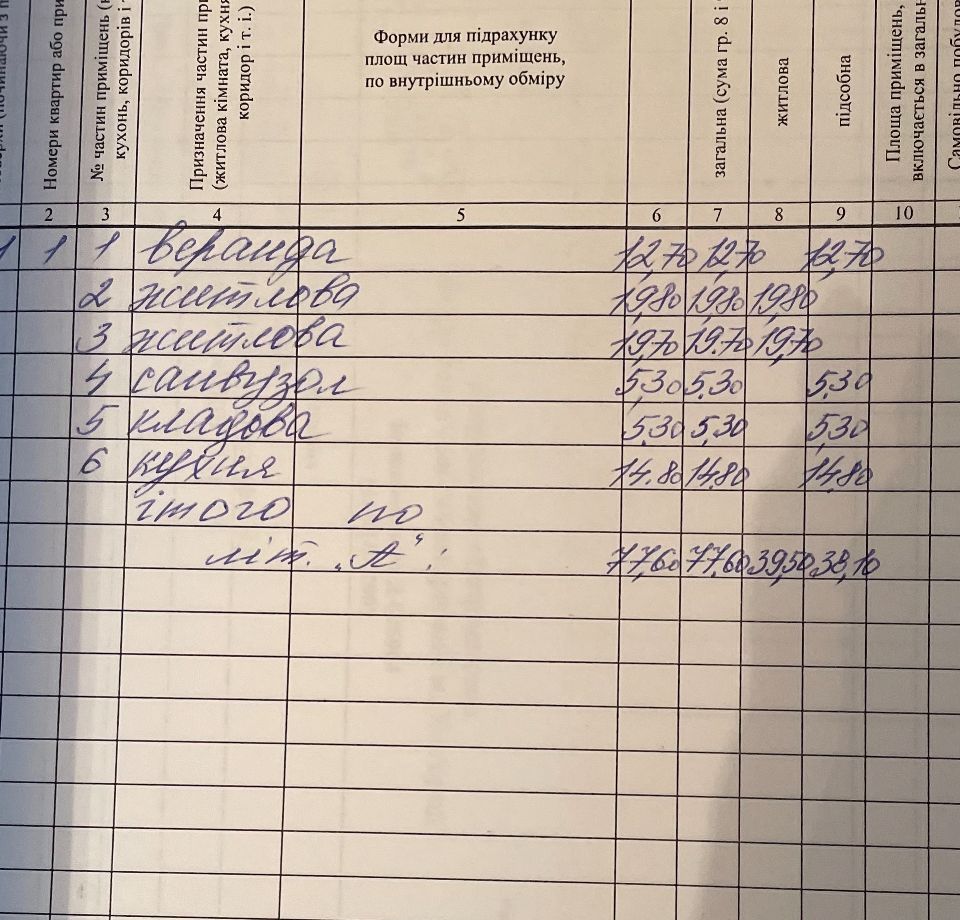 Номери квартир або при
№ частин приміщень (
кухонь, коридорів і
Призначення частин при
(житлова кімната, кухня
коридор і т. і.)
Форми для підрахунку
площ частин приміщень,
по внутрішньому обміру
загальна (сума гр. 8 і
житлова
підсобна
Площа приміщень,
включається в загальн
Самовільно побудов
2 3 4 5 6 7 8 9 10
1 1 1 веранда 12,70 12,70 12,70
2 житлова 19,80 19,80 19,80
3 житлова 19,70 19.70 19,70
4 санвузол 5,30 5.30 5.30
5 кладова 5,30 5,30 5,30
6 кухня 14.80 14.80 14,80
ітого по
літ. „А“: 77,60 77,60 39,50 38,10